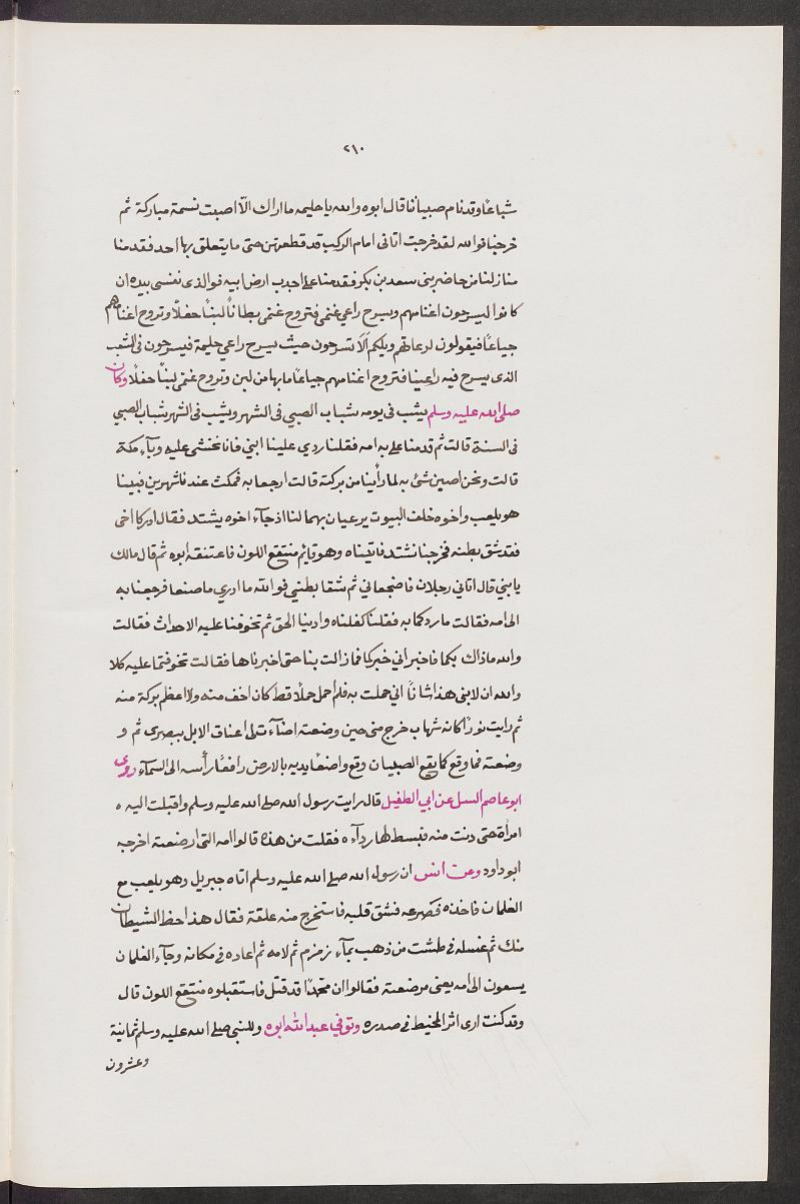 ٢١٠
شباعًا وقد نام صبياننا قال ابوه والله يا حليمه ما اراك الّا اصبت نسمة مباركة ثم
خرجنا فوالله لقد خرجت اتانى امام الركب قد قطعتهن حتى ما يتعلق بها احد فقدمنا
منازلنا من حاضر بنى سعد بن بكر فقدمنا على اجدب ارض ابيه فوالذى نفسى بيده ان
كانوا ليسرحون اغنامهم ويسرح راعي غنمى فتروح غنمى بطانًا لبنًا حفلًا وتروح اغنامهم
جياعًا فيقولون لرعاتهم ويلكم اَلَا تسرحون حيث يسرح راعي حليمة فيسرحون فى الشعب
الذى يسرح فيه راعينا فتروح اغنامهم جياعًا ما بها من لبن وتروح غنمى لبنًا حفلًا وكان
صلى الله عليه وسلم يشب فى يومه شباب الصبي فى الشهر ويشب فى الشهر شباب الصبي
فى السنة قالت ثم قدمنا على به امه فقلنا ردي علينا ابني فانا نخشى عليه وبآء مكة
قالت ونحن اضنين شئ به لما رأينا من بركته قالت ارجعا به فمكث عندنا شهرين فبينا
هو يلعب واخوه خلف البيوت يرعيان بهما لنا اذ جآء اخوه يشتد فقال ادركا اخى
فقد شق بطنه فخرجنا نشتد فاتيناه وهو قايم منتقع اللون فاعتنقه ابوه ثم قال مالك
يا بني قال اتاني رجلان فاضجعاني ثم شقا بطني فوالله ما ادري ما صنعا فرجعنا به
الى امه فقالت ما ردكما به فقلنا كفلناه وادينا الحق ثم تخوفنا عليه الاحداث فقالت
والله ماذاك بكما فاخبراني خبركما فما زالت بنا حتى اخبرناها فقالت تخوفتما عليه كلا
والله ان لابنى هذا شانًا اني حملت به فلم احمل حملًا قط كان اخف منه ولا اعظم بركة منه
ثم رايت نورًا كانه شهاب خرج منى حين وضعته اضآءت لى اعناق الابل ببصرى ثم و
وضعته فما وقع كما يقع الصبيان وقع واضعًا يديه بالارض رافعًا رأسه الى السمآء روى
ابو عاصم السل عن ابي الطفيل قال رايت رسول الله صلى الله عليه وسلم واقبلت اليه ه
امرأة حتى دنت منه فبسط لها ردآءه فقلت من هذه قالوا امه التى ارضعته اخرجه
ابو داود وعن انس ان رسول الله صلى الله عليه وسلم اتاه جبريل وهو يلعب مع
الغلمان فاخذه فصرعه فشق قلبه فاستخرج منه علقة فقال هذا حظ الشيطان
منك ثم غسله فى طشت من ذهب بمآء زمزم ثم لامه ثم اعاده فى مكانه وجآء الغلمان
يسعون الى امه يعنى مرضعته فقالوا ان محمدًا قد قتل فاستقبلوه منتقع اللون قال
وقد كنت ارى اثر المخيط فى صدره وتوفي عبد الله ابوه وللنبى صلى الله عليه وسلم ثمانية
وعشرون